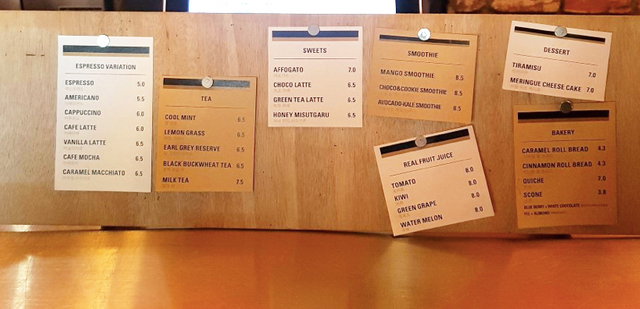 ESPRESSO VARIATION
ESPRESSO 5.0
AMERICANO 5.5
CAPPUCCINO 6.0
CAFE LATTE 6.0
VANILLA LATTE 6.5
CAFE MOCHA 6.5
CARAMEL MACCHIATO 6.5
TEA
COOL MINT 6.5
LEMON GRASS 6.5
EARL GREY RESERVE 6.5
BLACK BUCKWHEAT TEA 6.5
MILK TEA 7.5
SWEETS
AFFOGATO 7.0
CHOCO LATTE 6.5
GREEN TEA LATTE 6.5
HONEY MISUTGARU 6.5
SMOOTHIE
MANGO SMOOTHIE 8.5
CHOCO&COOKIE SMOOTHIE 8.5
AVOCADO-KALE SMOOTHIE 8.5
REAL FRUIT JUICE
TOMATO 8.0
KIWI 8.0
GREEN GRAPE 8.0
WATER MELON 8.0
DESSERT
TIRAMISU 7.0
MERINGUE CHEESE CAKE 7.0
BAKERY
CARAMEL ROLL BREAD 4.3
CINNAMON ROLL BREAD 4.3
QUICHE 7.0
SCONE 3.8
BLUE BERRY + WHITE CHOCOLATE
FIG + ALMOND